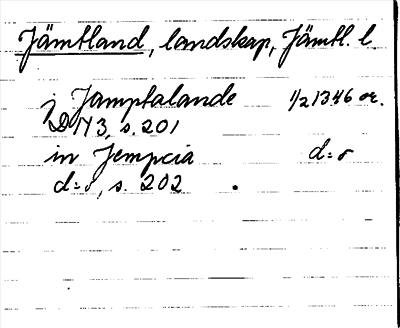 Jämtland, landskap, Jämtl. l.
j Jamptalande 1/2 1346 or.
DN 3, s. 201
in Jempcia d:o
d:o, s. 202